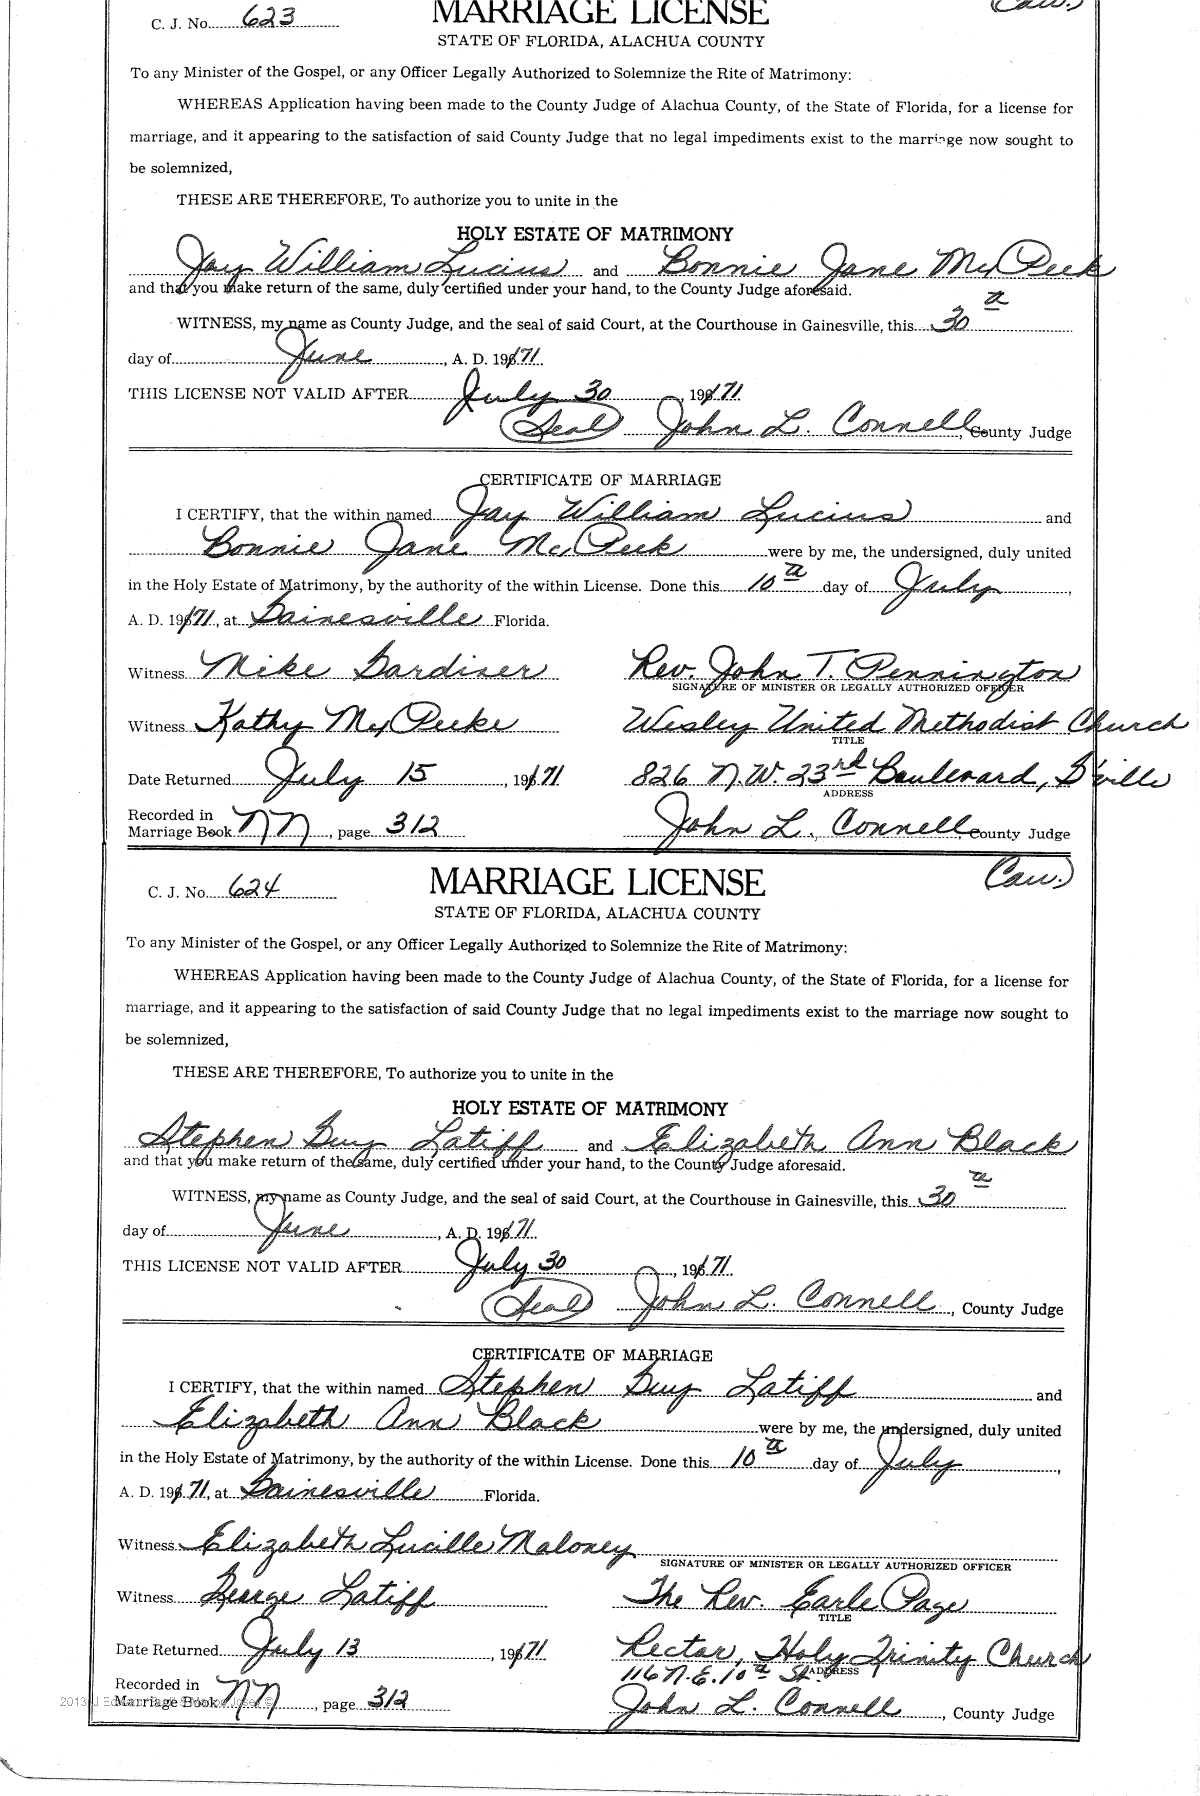 C. J. No. 623 MARRIAGE LICENSE (Cau.)
STATE OF FLORIDA, ALACHUA COUNTY
To any Minister of the Gospel, or any Officer Legally Authorized to Solemnize the Rite of Matrimony:
WHEREAS Application having been made to the County Judge of Alachua County, of the State of Florida, for a license for
marriage, and it appearing to the satisfaction of said County Judge that no legal impediments exist to the marriage now sought to
be solemnized,
THESE ARE THEREFORE, To authorize you to unite in the
HOLY ESTATE OF MATRIMONY
Jay William Lucius and Bonnie Jane McPeek
and that you make return of the same, duly certified under your hand, to the County Judge aforesaid.
WITNESS, my name as County Judge, and the seal of said Court, at the Courthouse in Gainesville, this 30th
day of June, A. D. 1971.
THIS LICENSE NOT VALID AFTER July 30, 1971.
(Seal) John L. Connell, County Judge
CERTIFICATE OF MARRIAGE
I CERTIFY, that the within named Jay William Lucius and
Bonnie Jane McPeek were by me, the undersigned, duly united
in the Holy Estate of Matrimony, by the authority of the within License. Done this 10th day of July,
A. D. 1971, at Gainesville Florida.
Witness Mike Gardiner Rev. John T. Pennington
SIGNATURE OF MINISTER OR LEGALLY AUTHORIZED OFFICER
Witness Kathy McPeeke Wesley United Methodist Church
TITLE
Date Returned July 15, 1971 826 N.W. 23rd Boulevard, G'ville
ADDRESS
Recorded in
Marriage Book NN, page 312 John L. Connell, County Judge
C. J. No. 624 MARRIAGE LICENSE (Cau.)
STATE OF FLORIDA, ALACHUA COUNTY
To any Minister of the Gospel, or any Officer Legally Authorized to Solemnize the Rite of Matrimony:
WHEREAS Application having been made to the County Judge of Alachua County, of the State of Florida, for a license for
marriage, and it appearing to the satisfaction of said County Judge that no legal impediments exist to the marriage now sought to
be solemnized,
THESE ARE THEREFORE, To authorize you to unite in the
HOLY ESTATE OF MATRIMONY
Stephen Guy Latiff and Elizabeth Ann Black
and that you make return of the same, duly certified under your hand, to the County Judge aforesaid.
WITNESS, my name as County Judge, and the seal of said Court, at the Courthouse in Gainesville, this 30th
day of June, A. D. 1971.
THIS LICENSE NOT VALID AFTER July 30, 1971.
(Seal) John L. Connell, County Judge
CERTIFICATE OF MARRIAGE
I CERTIFY, that the within named Stephen Guy Latiff and
Elizabeth Ann Black were by me, the undersigned, duly united
in the Holy Estate of Matrimony, by the authority of the within License. Done this 10th day of July,
A. D. 1971, at Gainesville Florida.
Witness Elizabeth Lucille Maloney
SIGNATURE OF MINISTER OR LEGALLY AUTHORIZED OFFICER
Witness George Latiff The Rev. Earle Page
TITLE
Date Returned July 13, 1971 Rector, Holy Trinity Church
116 N.E. 10th St. ADDRESS
Recorded in
Marriage Book NN, page 312 John L. Connell, County Judge
2013